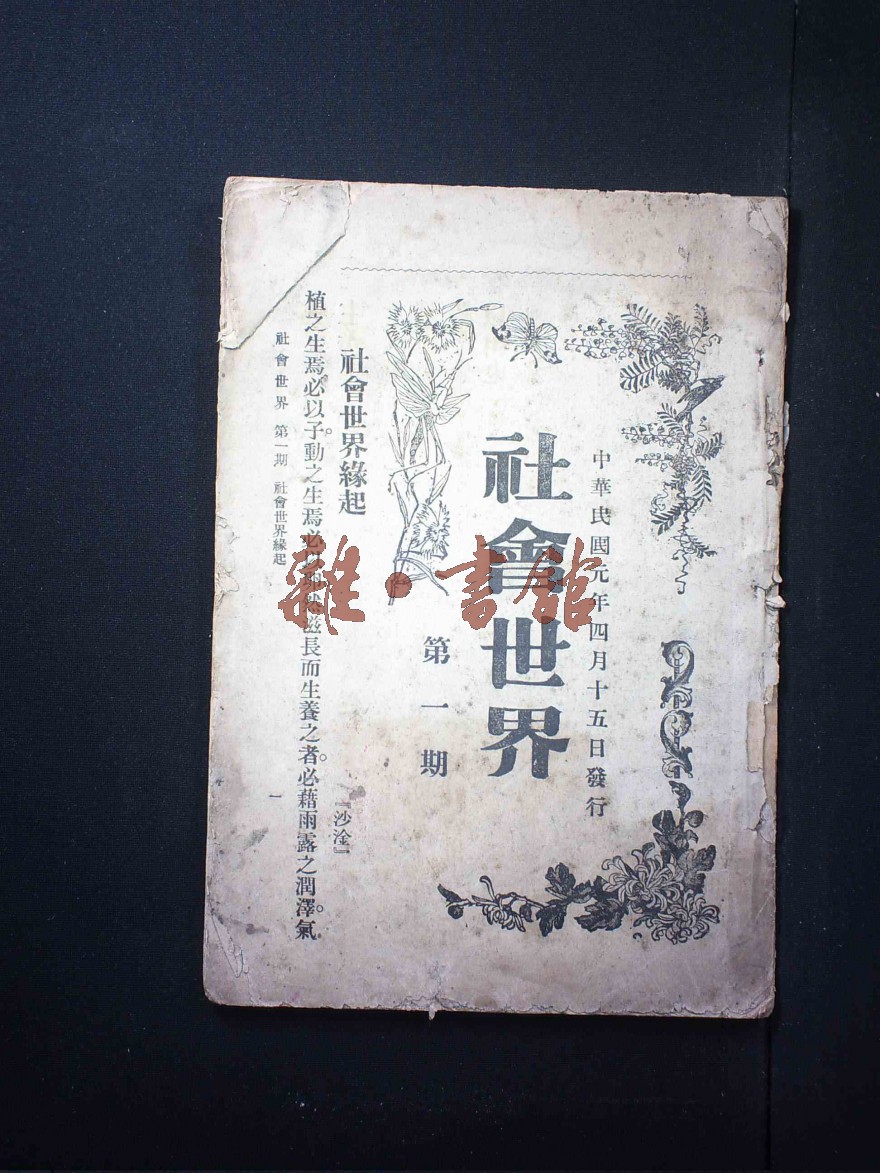 中華民國元年四月十五日發行
社會世界
第一期
社會世界緣起
『沙淦』
植之生焉。必以子。動之生焉。必以卵。然滋長而生養之者。必藉雨露之潤澤。氣
社會世界 第一期 社會世界緣起
一
雜·書館